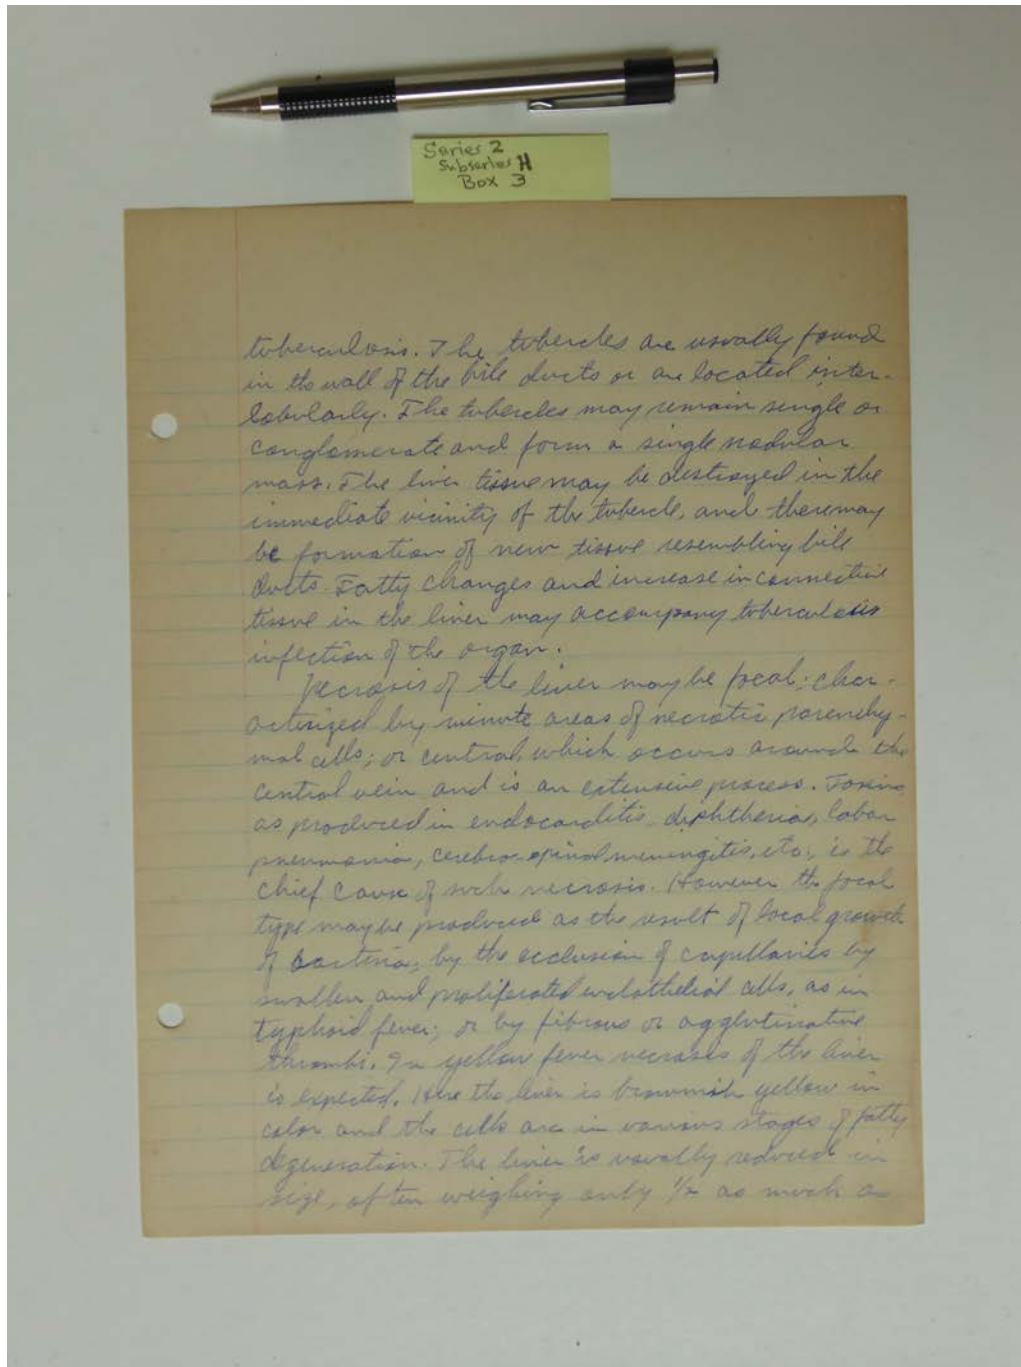 Series 2
Subseries H
Box 3
tuberculosis. The tubercles are usually found
in the wall of the bile ducts or are located inter-
lobularly. The tubercles may remain single or
conglomerate and form a single nodular
mass. The liver tissue may be destroyed in the
immediate vicinity of the tubercle, and there may
be formation of new tissue resembling bile
ducts. Fatty changes and increase in connective
tissue in the liver may accompany tuberculosis
infection of the organ.
Necrosis of the liver may be focal; char-
acterized by minute areas of necrotic parenchy-
mal cells; or central, which occurs around the
central vein and is an extensive process. Toxins
as produced in endocarditis, diphtheria, lobar
pneumonia, cerebro-spinal meningitis, etc., is the
chief cause of such necrosis. However the focal
type may be produced as the result of local growth
of bacteria; by the occlusion of capillaries by
swollen and proliferated endothelial cells, as in
typhoid fever; or by fibrous or agglutinative
thrombi. In yellow fever necroses of the liver
is expected. Here the liver is brownish yellow in
color and the cells are in various stages of fatty
degeneration. The liver is usually reduced in
size, often weighing only 1/2 as much as